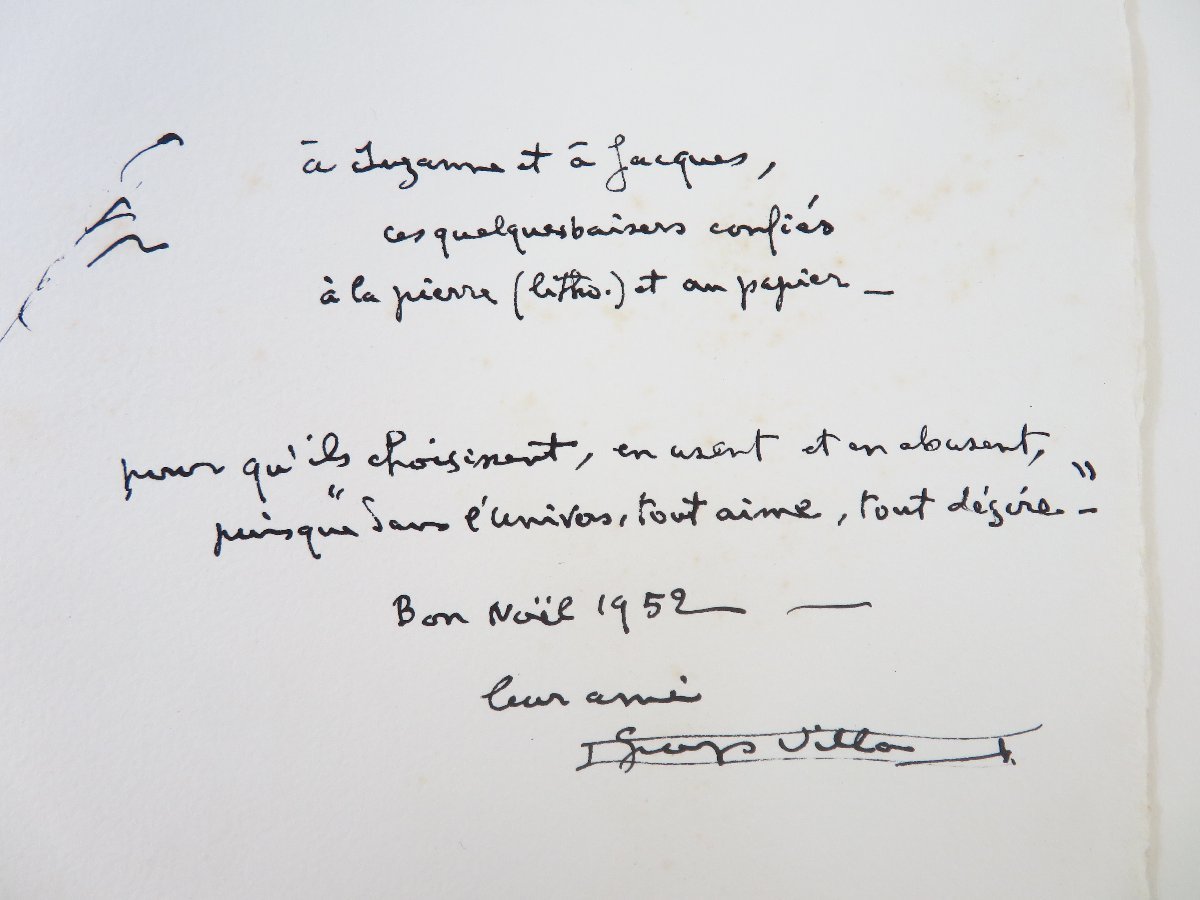 à Suzanne et à Jacques,
ces quelques baisers confiés
à la pierre (litho.) et au papier _
pour qu'ils choisissent, en usent et en abusent,
puisque "dans l'univers, tout aime, tout désire." _
Bon Noël 1952 —
leur ami